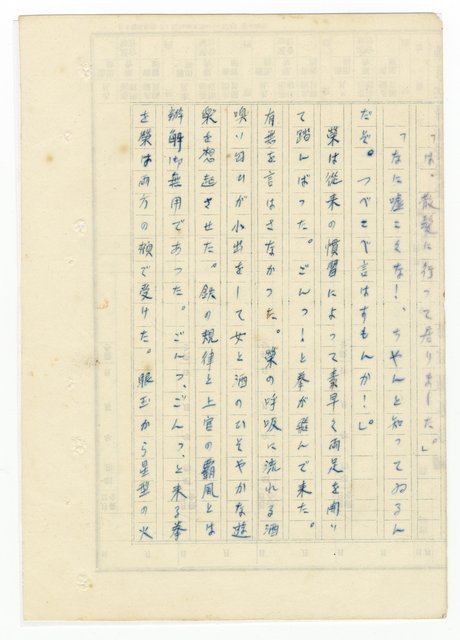 「は、散髪に行って居りました。」
「なに嘘こくな！、ちやんと知ってゐるん
だぞ。つべこべ言はすもんか！」。
榮は従来の慣習によって素早く両足を開い
て踏んばった。ごんっ！と拳が飛んで来た。
有無を言はさなかった。榮の呼吸に流れる酒
嗅い匂ひが小出をして女と酒のひそやかな遊
楽を想起させた。鉄の規律と上官の覇風とは
辨解御無用であつた。ごんっ、ごんっ、と来る拳
を榮は両方の頬で受けた。眼玉から星型の火